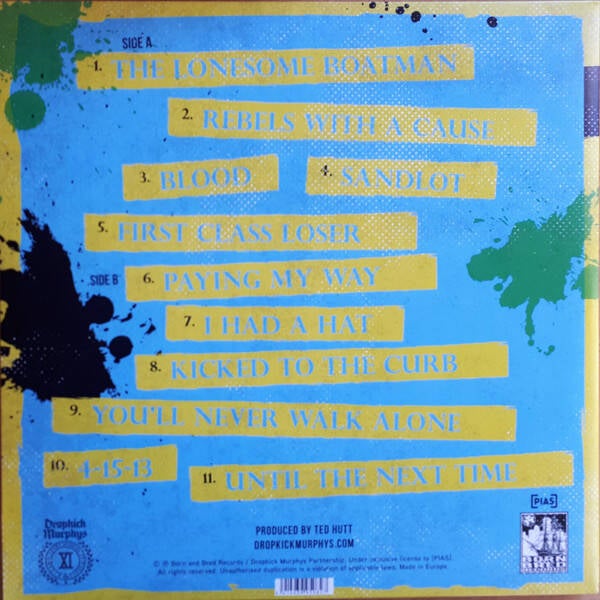 SIDE A
1. THE LONESOME BOATMAN
2. REBELS WITH A CAUSE
3. BLOOD
4. SANDLOT
5. FIRST CLASS LOSER
SIDE B
6. PAYING MY WAY
7. I HAD A HAT
8. KICKED TO THE CURB
9. YOU'LL NEVER WALK ALONE
10. 4-15-13
11. UNTIL THE NEXT TIME
[PIAS]
PRODUCED BY TED HUTT
DROPKICKMURPHYS.COM
Dropkick
Murphys
XI
BORN
BRED
© ℗ Born and Bred Records / Dropkick Murphys Partnership. Under exclusive license to [PIAS].
All rights reserved. Unauthorised duplication is a violation of applicable laws. Made in Europe.